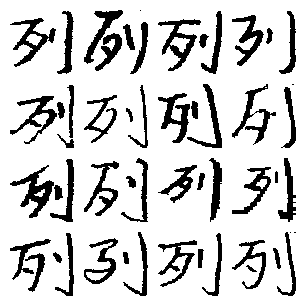 列列列列
列列列列
列列列列
列列列列